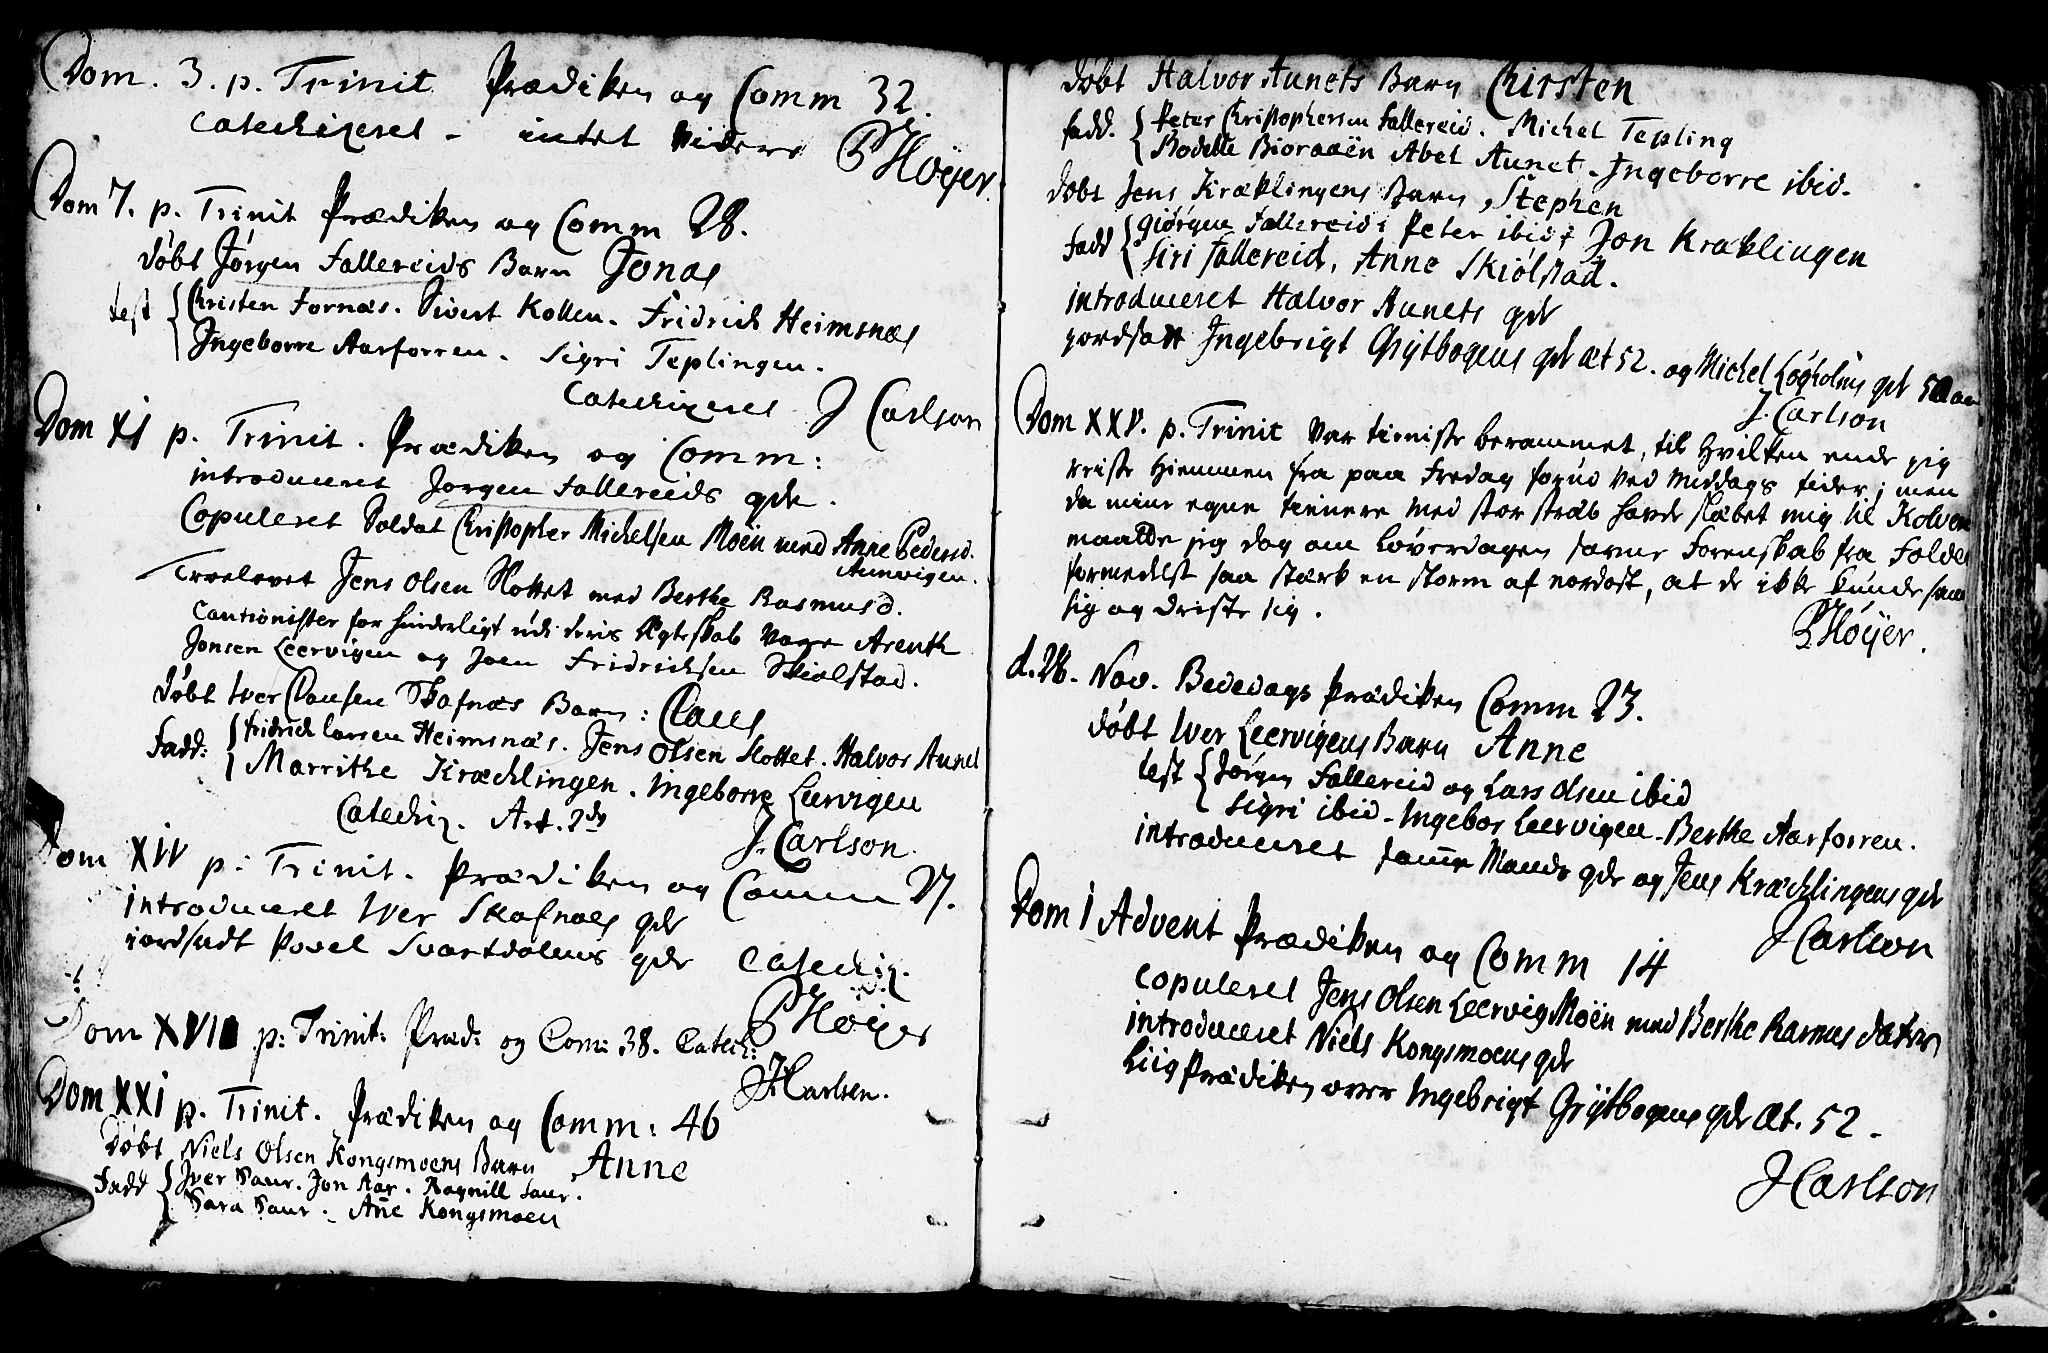 Dom. 3. p. Trinit Prædiken og Comm 32.
Catechizeret - intet videre
PHøyer.
Dom 7. p. Trinit Prædiken og Comm 28.
døbt Jørgen Fallereids Barn Jonas
test { Christen Fornæs. Sivert Kollen. Fridrich Heimsnæs
Ingeborre Aarforren. Sigri Teplingen.
Catechizeret J Carlson
Dom XI p. Trinit. Prædiken og Comm:
introduceret Jørgen Fallereids qde.
Copuleret Soldat Christopher Michelsen Moën med Anne Pedersd.
Aunvigen.
Trolovet Jens Olsen Slottet med Berthe Rasmusd.
Cautionister for hinderligt udi deris Ægteskab vare Arenth
Jonsen Leervigen og Joen Fridrichsen Skiolstad.
døbt Iwer Clausen Skafnæs Barn: Claus
Fadd: { Fridrich Larsen Heimsnæs. Jens Olsen Slottet. Halvor Aunet
Marrithe Kræchlingen. Ingeborre Leervigen
Catechiz. Art. 2dn
J. Carlson.
Dom XIV p: Trinit. Prædiken og Comm 27.
introduceret Iver Skafnæs qde
iordsadt Povel Svartdalens qde Catechiz.
PHøyer
Dom XVII p: Trinit: Præd: og Com: 38. Catech:
JCarlsen.
Dom XXI p. Trinit. Prædiken og Comm: 46
Døbt Niels Olsen Kongsmoens Barn Anne
Fadd { Iver Saur. Jon Aar. Ragnill Saur.
Sara Saur. Añe Kongsmoen
døbt Halvor Aunets Barn Chirsten
fadd. { Peter Christophersen Fallereid. Michel Tepling
Bodelle Bioraaën Abel Aunet. Ingeborre ibid.
døbt Jens Kræklingens Barn Stephen
Fadd { Giørgen Fallereid, Peter ibid, Jon Kræklingen
Siri Fallereid, Anne Skiølstad.
introduceret Halvor Aunets qde
jordsatt Ingebrigt Grytbogens qde æt 52. og Michel Løgholms qde 50 aar
J. Carlson
Dom XXV. p. Trinit var tieniste berammet, til hvilken ende jeg
reiste hiemmen fra paa Fredag forud ved middags tider; men
da mine egne tienere med stor stræb havde slæbet mig til Kolver
maatte jeg dog om Løverdagen savne Forenskab fra Folde
formedelst saa stærk en storm af nordost, at de ikke kunde
sig og driste sig.
PHøyer.
d. 28. Nov. Bededags Prædiken Comm 23.
døbt Iver Leervigens Barn Anne
test { Jørgen Fallereid og Lars Olsen ibid
Sigri ibid. Ingebor Leervigen. Berthe Aarforren.
introduceret samme Mands qde og Jens Kræchlingens qde
JCarlson
Dom I Advent Prædiken og Comm 14
copuleret Jens Olsen Leervig Moën med Berthe Rasmus datter
introduceret Niels Kongsmoens qde
Liig Prædiken over Ingebrigt Grytbogens qde Æt. 52.
JCarlson